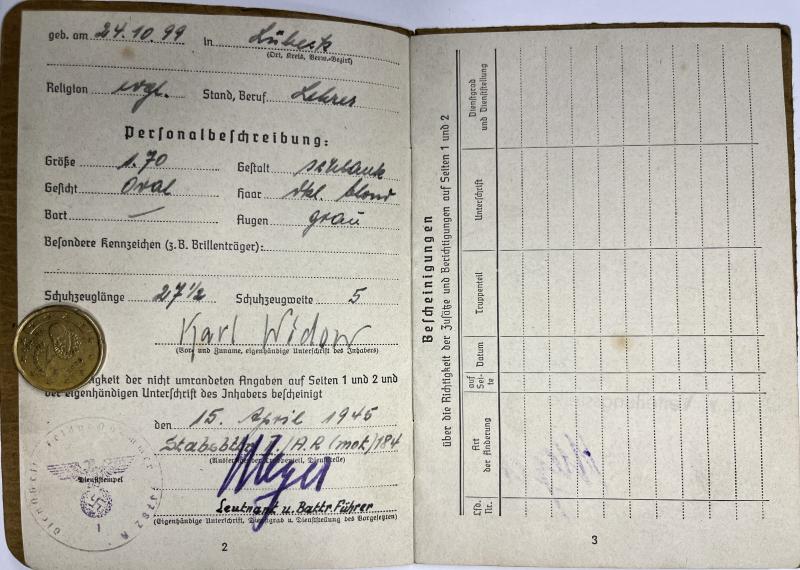 geb. am 24.10.99 in Lübeck
(Ort, Kreis, Verw.-Bezirk)
Religion evgl. Stand, Beruf Lehrer
Personalbeschreibung:
Größe 1.70 Gestalt schlank
Gesicht Oval Haar dkl. blond
Bart — Augen grau
Besondere Kennzeichen (z.B. Brillenträger):
Schuhzeuglänge 27½ Schuhzeugweite 5
Karl Widow
(Vor- und Zuname, eigenhändige Unterschrift des Inhabers)
igkeit der nicht umrandeten Angaben auf Seiten 1 und 2 und
der eigenhändigen Unterschrift des Inhabers bescheinigt
den 15. April 1945
/A.R (mot) 184
Meyer
Dienststempel
Leutnant u. Battr. Führer
(Eigenhändige Unterschrift, Dienstgrad u. Dienststellung des Vorgesetzten)
2
Bescheinigungen
über die Richtigkeit der Zusätze und Berichtigungen auf Seiten 1 und 2
Lfd. Nr.
Art der Änderung
auf Sei- te
Datum
Truppenteil
Unterschrift
Dienstgrad und Dienststellung
3